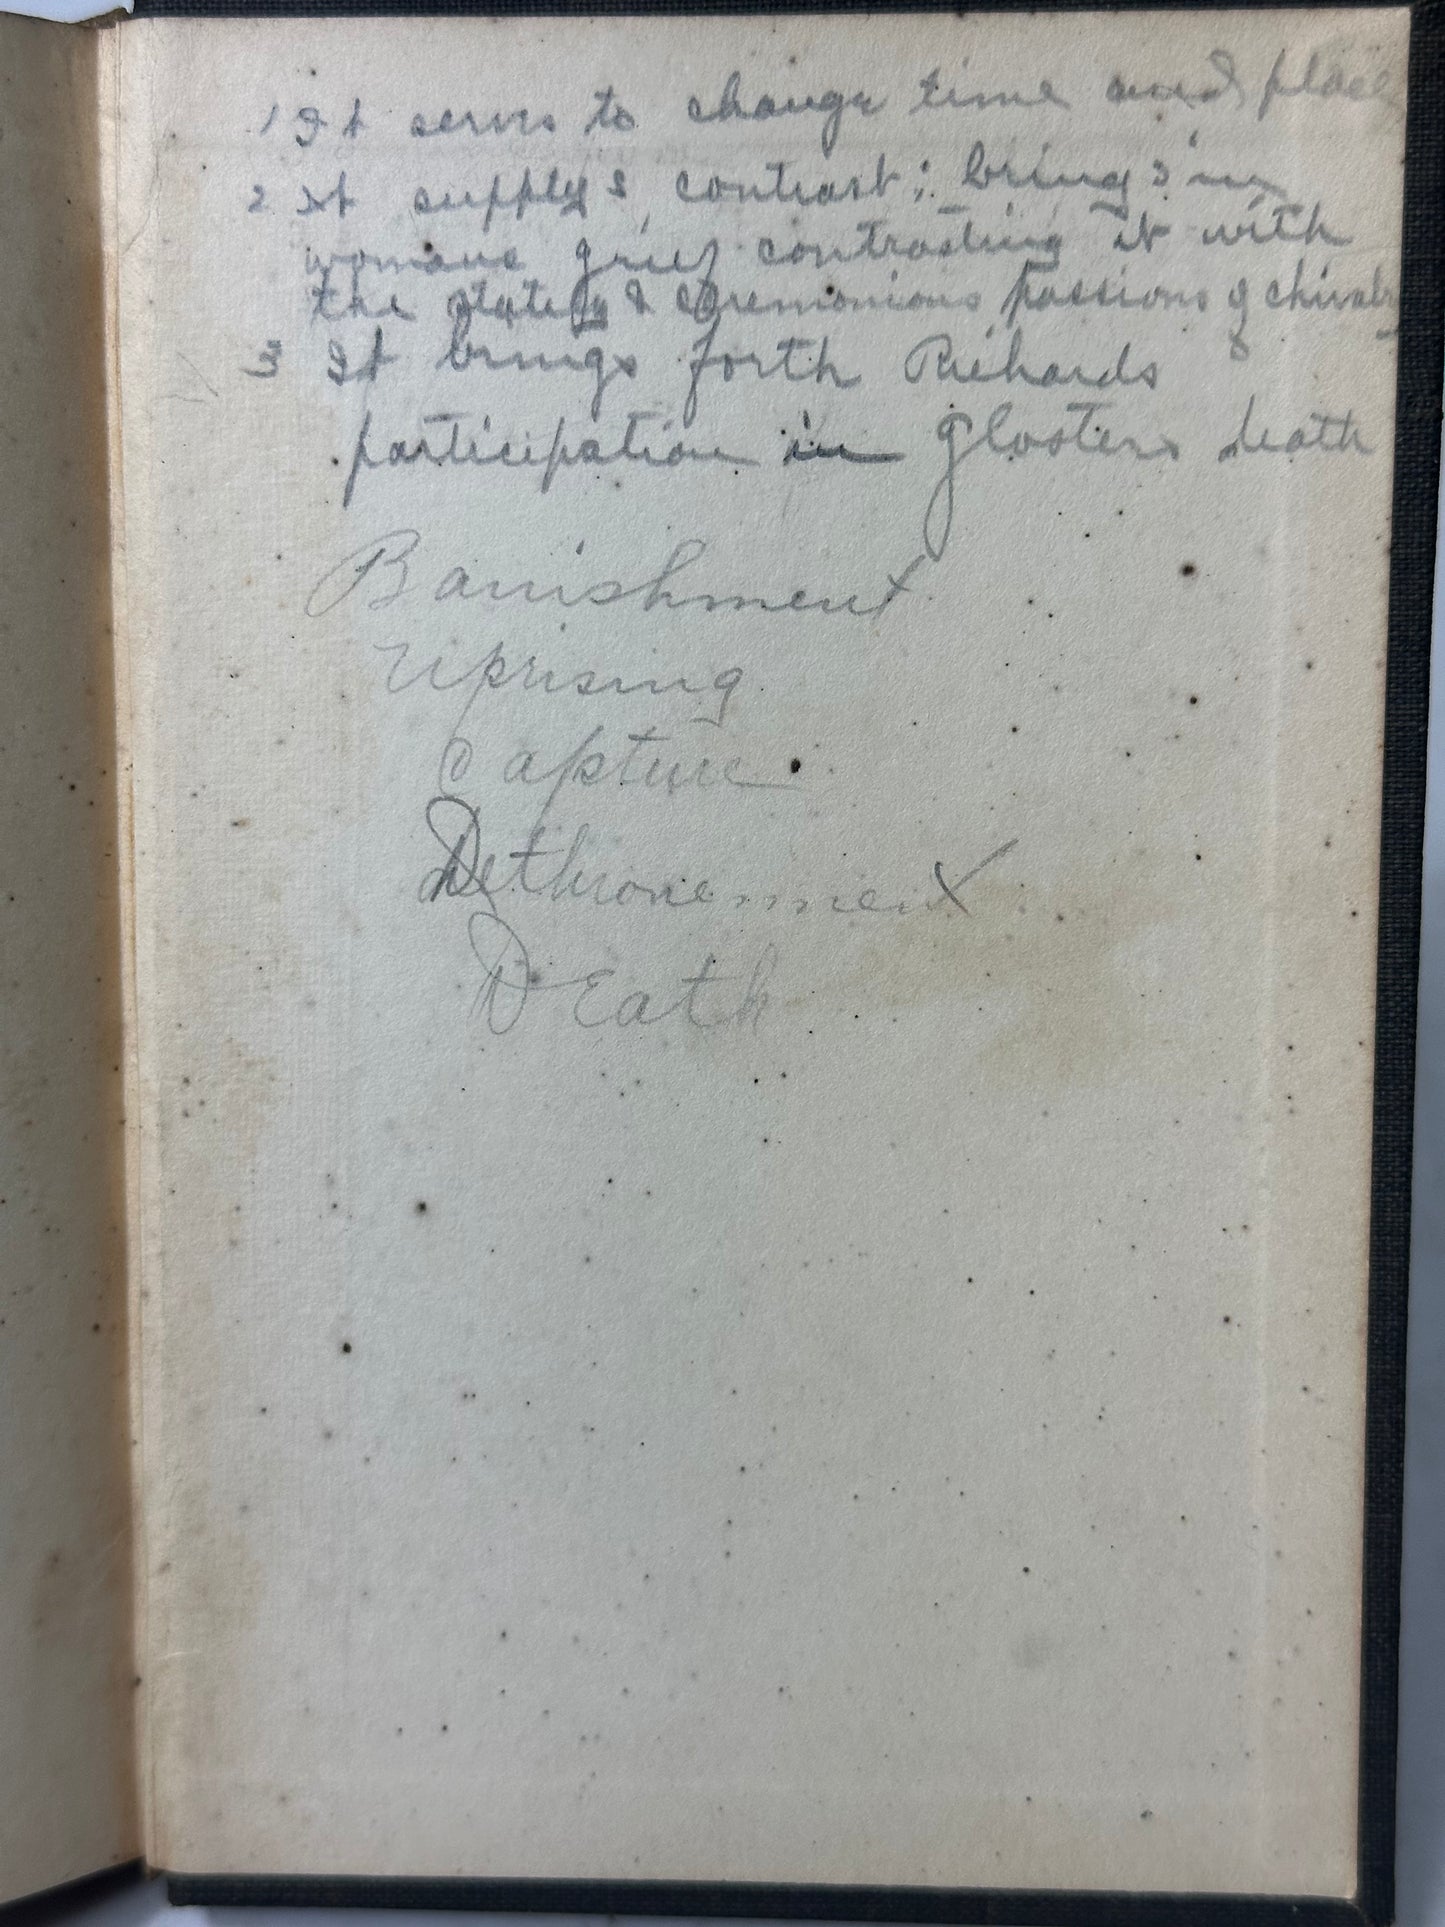 1 It serves to change time and place
2 It supplys contrast; brings in
womans grief contrasting it with
the stately & ceremonious passions of chivalry
3 It brings forth Richards
participation in glosters death
Banishment
Uprising
Capture
Dethronement
DEath